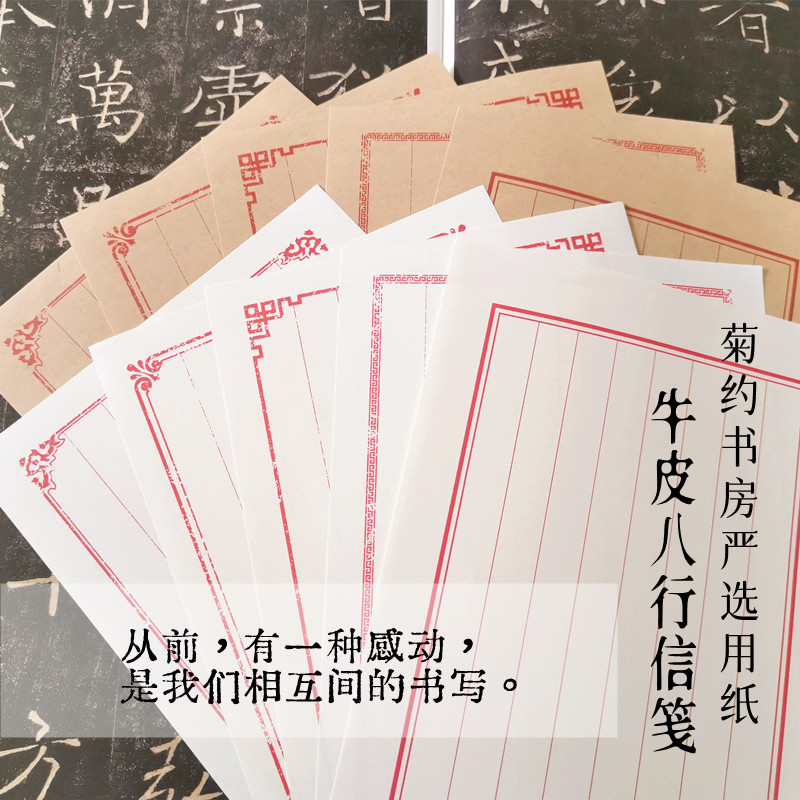 萬虛
菊约书房严选用纸
牛皮八行信笺
从前，有一种感动，
是我们相互间的书写。
方